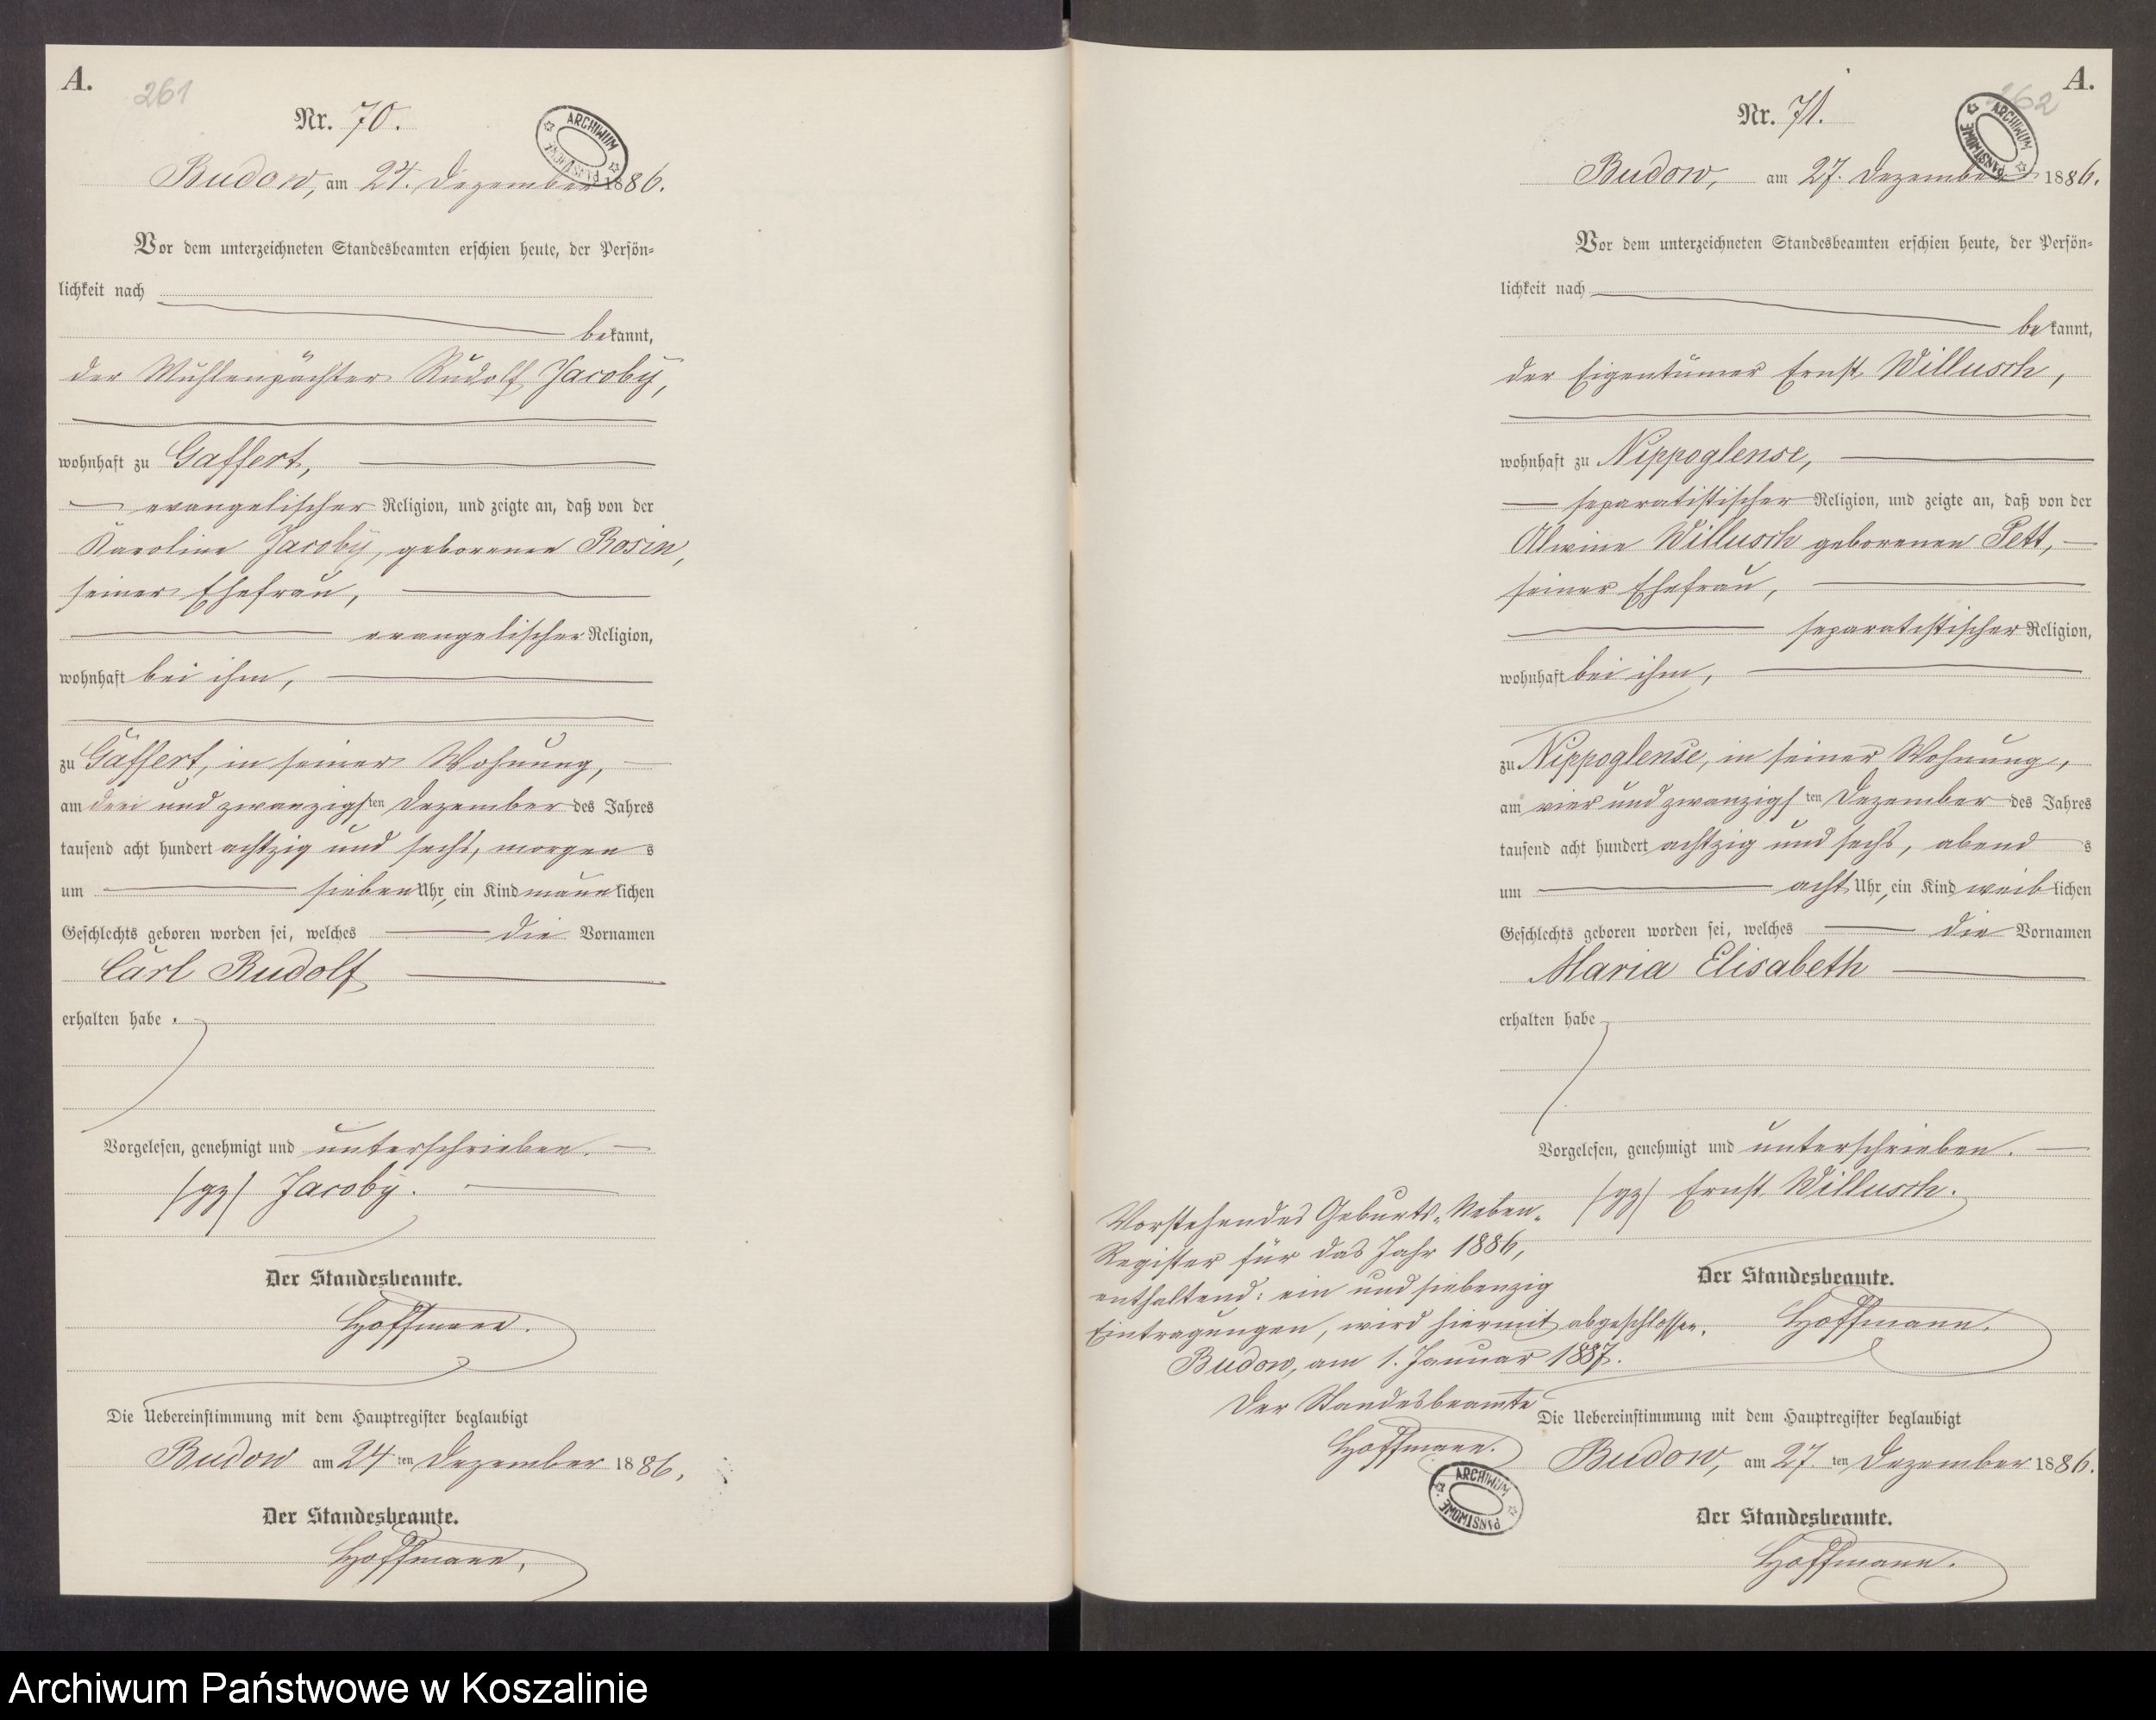 A.
261
Nr. 70.
ARCHIWUM PAŃSTWOWE
Budow, am 24. Dezember 1886.
Vor dem unterzeichneten Standesbeamten erschien heute, der Persön-
lichkeit nach
bekannt,
der Mühlenpächter Rudolf Jacoby,
wohnhaft zu Gaffert,
evangelischer Religion, und zeigte an, daß von der
Karoline Jacoby, geborenen Rosin,
seiner Ehefrau,
evangelischer Religion,
wohnhaft bei ihm,
zu Gaffert, in seiner Wohnung,
am drei und zwanzigsten Dezember des Jahres
tausend acht hundert achtzig und sechs, morgens
um sieben Uhr, ein Kind männlichen
Geschlechts geboren worden sei, welches die Vornamen
Carl Rudolf
erhalten habe.
Vorgelesen, genehmigt und unterschrieben.
(gz) Jacoby.
Der Standesbeamte.
Hoffmann.
Die Uebereinstimmung mit dem Hauptregister beglaubigt
Budow am 24ten Dezember 1886.
Der Standesbeamte.
Hoffmann.
A.
262
Nr. 71.
ARCHIWUM PAŃSTWOWE
Budow, am 27. Dezember 1886.
Vor dem unterzeichneten Standesbeamten erschien heute, der Persön-
lichkeit nach
bekannt,
der Eigentümer Ernst Willusch,
wohnhaft zu Nippoglense,
separatistischer Religion, und zeigte an, daß von der
Alwine Willusch geborenen Pett,
seiner Ehefrau,
separatistischer Religion,
wohnhaft bei ihm,
zu Nippoglense, in seiner Wohnung,
am vier und zwanzigsten Dezember des Jahres
tausend acht hundert achtzig und sechs, abends
um acht Uhr, ein Kind weiblichen
Geschlechts geboren worden sei, welches die Vornamen
Maria Elisabeth
erhalten habe
Vorgelesen, genehmigt und unterschrieben.
(gz) Ernst Willusch.
Der Standesbeamte.
Hoffmann.
Vorstehendes Geburts-Neben-
Register für das Jahr 1886,
enthaltend: ein und siebenzig
Eintragungen, wird hiermit abgeschlossen.
Budow, am 1. Januar 1887.
Der Standesbeamte
Hoffmann.
ARCHIWUM PAŃSTWOWE
Die Uebereinstimmung mit dem Hauptregister beglaubigt
Budow, am 27. ten Dezember 1886.
Der Standesbeamte.
Hoffmann.
Archiwum Państwowe w Koszalinie